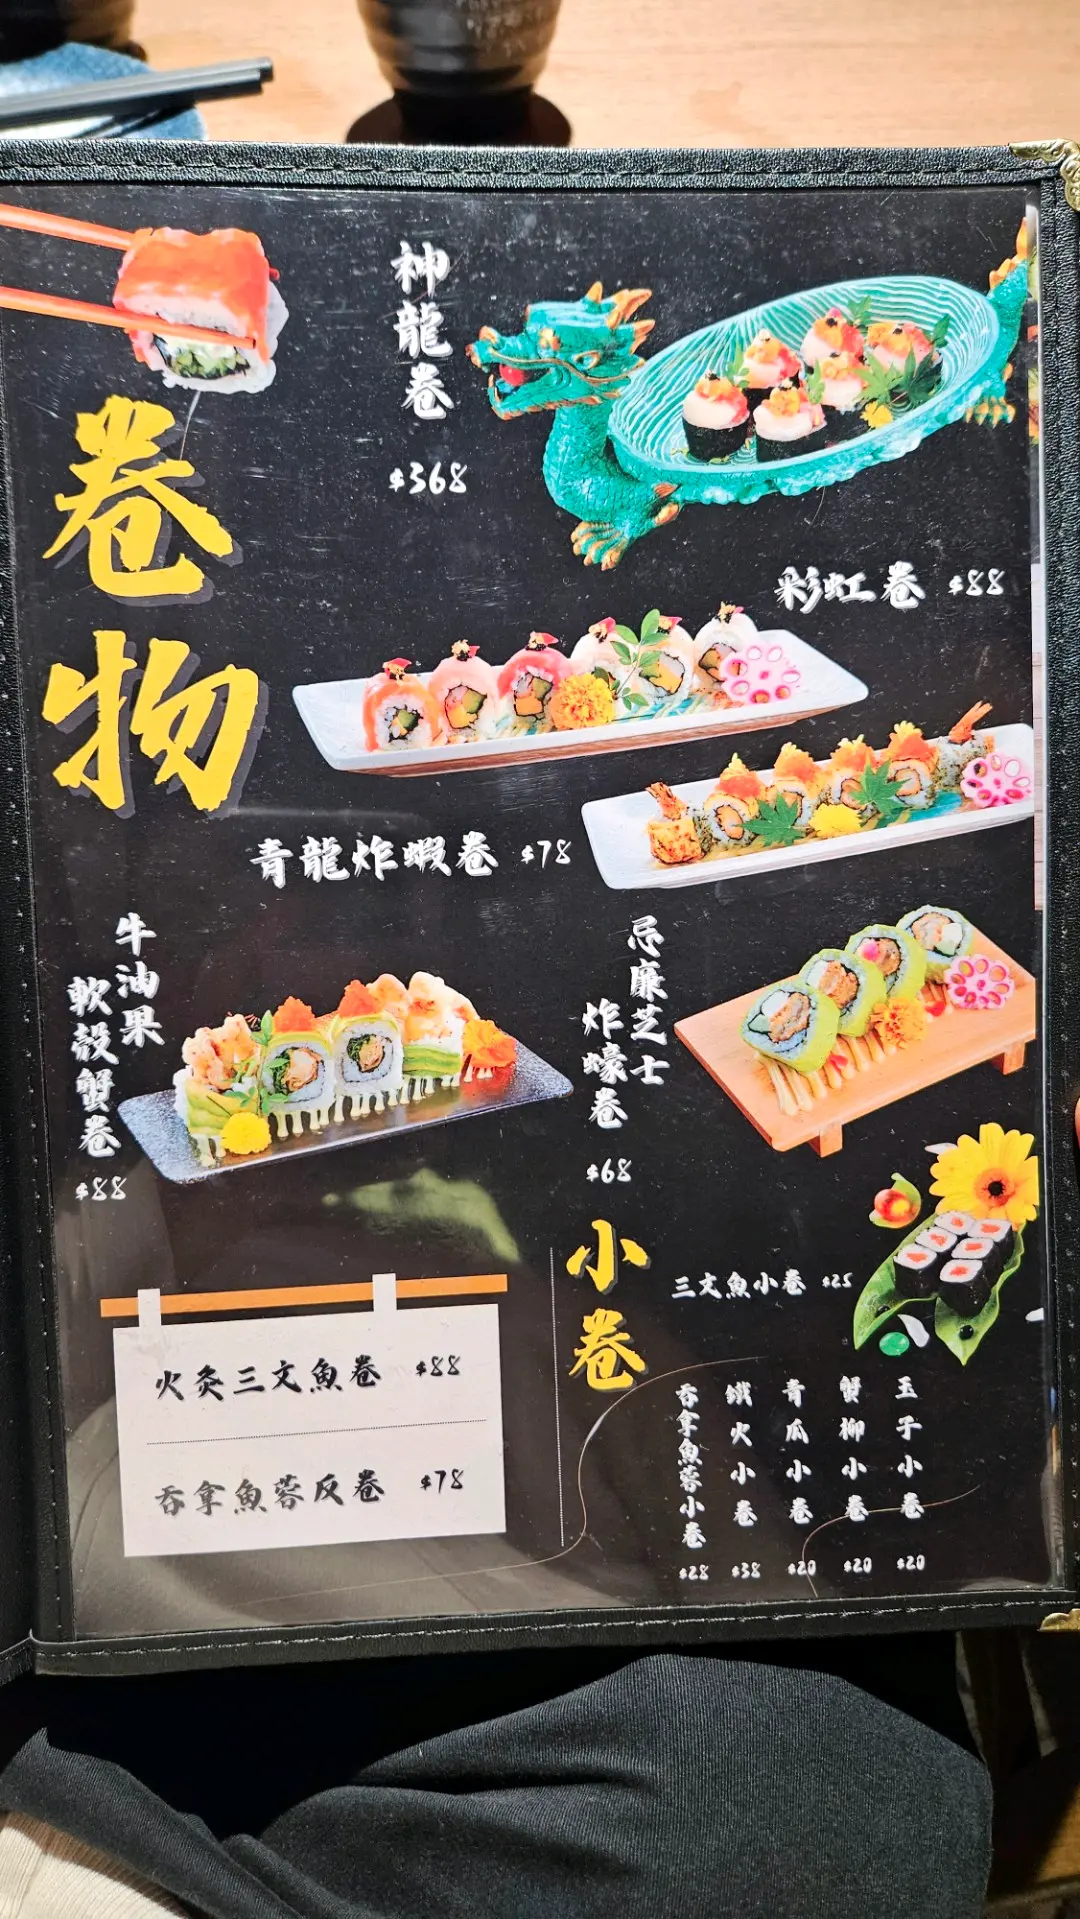 卷物
神龍卷
$368
彩虹卷 $88
青龍炸蝦卷 $78
牛油果
軟殼蟹卷
$88
忌廉芝士
炸蠔卷
$68
火炙三文魚卷 $88
吞拿魚蓉反卷 $78
小卷
三文魚小卷 $25
吞拿魚蓉小卷 $28
鐵火小卷 $38
青瓜小卷 $20
蟹柳小卷 $20
玉子小卷 $20